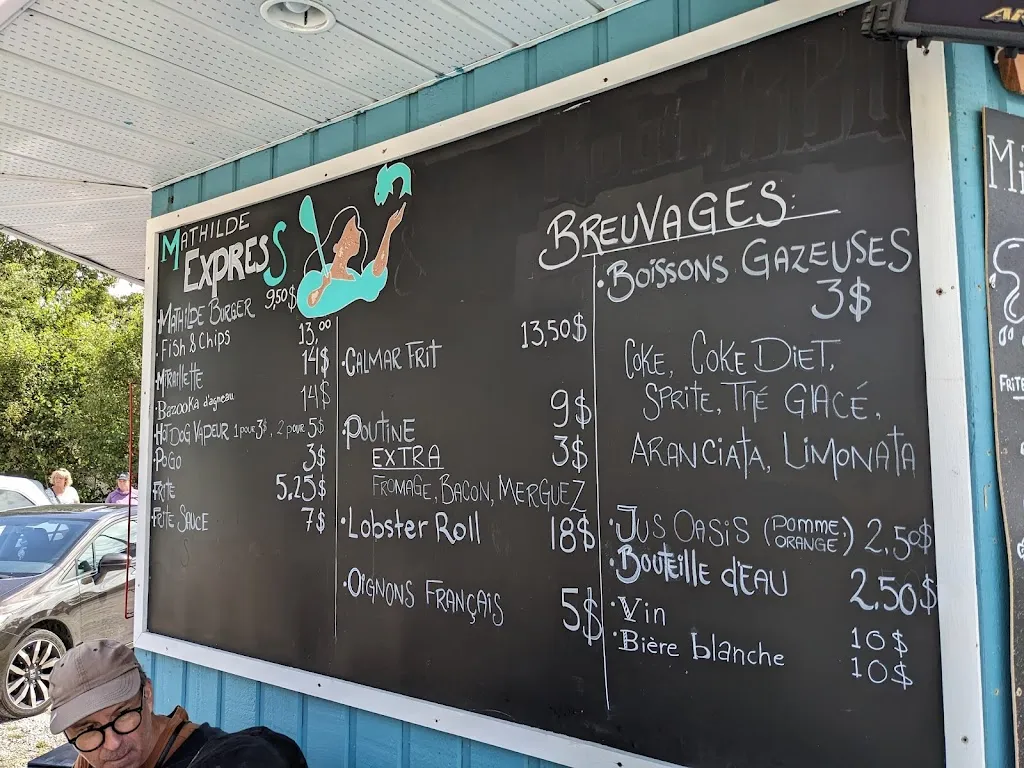 MATHILDE
EXPRESS
·MATHILDE BURGER 9,50$
·FISH & CHIPS 13,00
·MITRAILLETTE 14$
·BAZOOKA d'agneau 14$
·HOT DOG VAPEUR 1 pour 3$, 2 pour 5$
·POGO 3$
·FRITE 5.25$
·FRITE SAUCE 7$
·CALMAR FRIT 13,50$
·POUTINE 9$
EXTRA 3$
FROMAGE, BACON, MERGUEZ
·LOBSTER ROLL 18$
·OIGNONS FRANÇAIS 5$
BREUVAGES:
·BOISSONS GAZEUSES
3$
COKE, COKE DIET,
SPRITE, THÉ GLACÉ,
ARANCIATA, LIMONATA
·JUS OASIS (POMME, ORANGE) 2,50$
·BOUTEILLE d'EAU 2.50$
·Vin 10$
·Bière blanche 10$